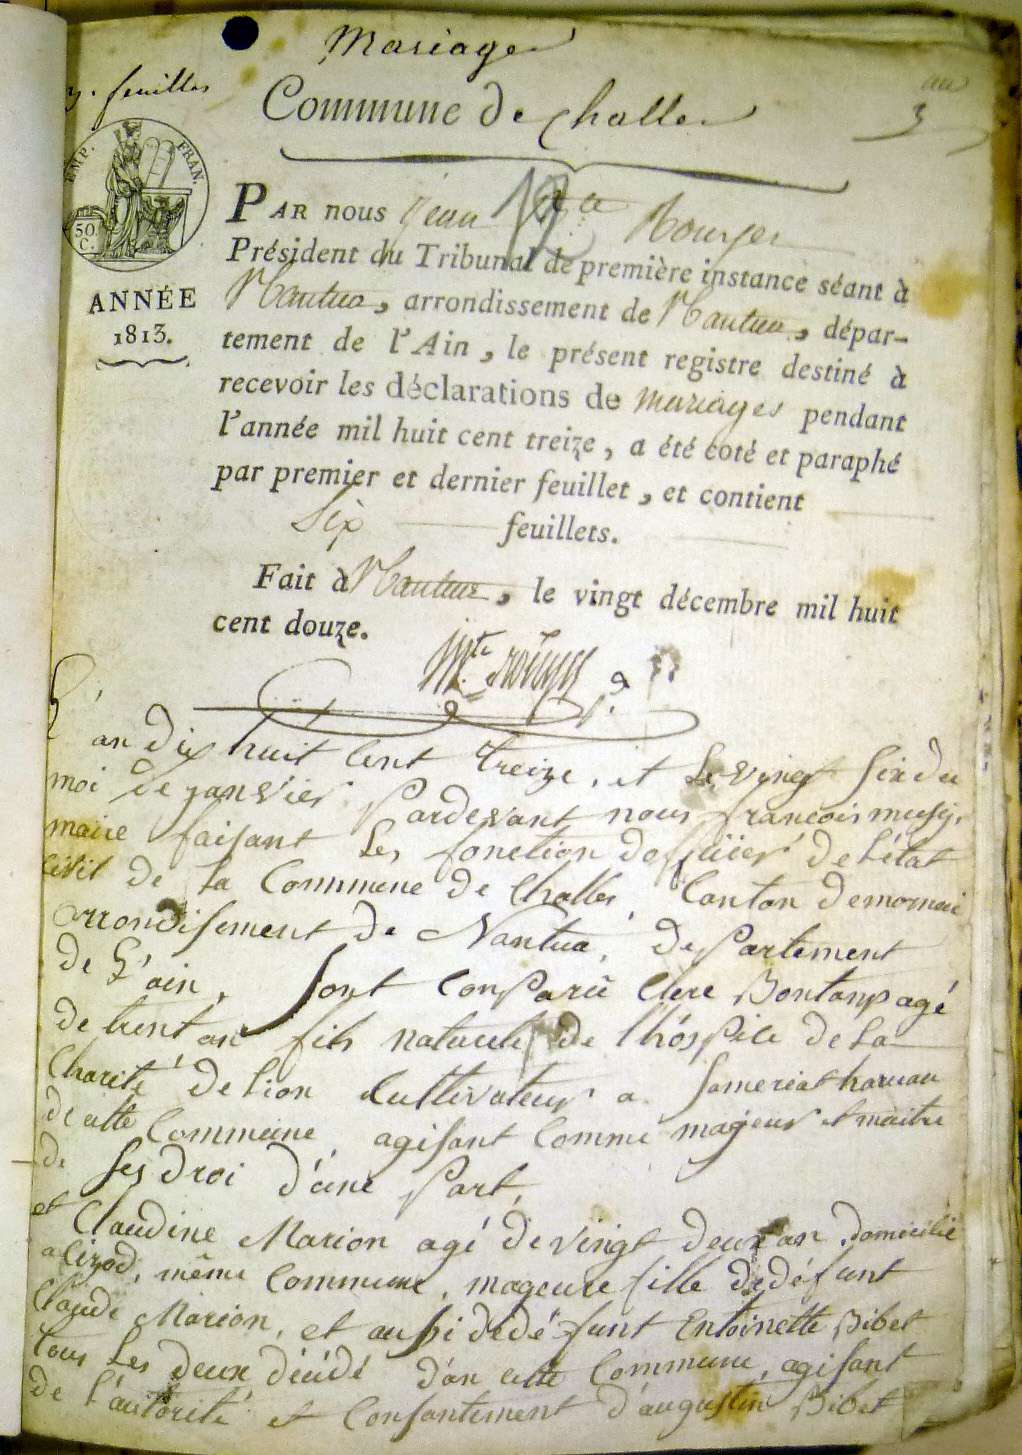 Mariage
3. feuilles
Commune de Challes
3
EMP. FRAN.
50. C.
ANNÉE
1813.
PAR nous Jean Bte Rouyer
Président du Tribunal de première instance séant à
Nantua, arrondissement de Nantua, dépar-
tement de l'Ain, le présent registre destiné à
recevoir les déclarations de mariages pendant
l'année mil huit cent treize, a été coté et paraphé
par premier et dernier feuillet, et contient
Six feuillets.
Fait à Nantua, le vingt décembre mil huit
cent douze.
L'an dix huit Cent treize, et Le vingt six du
moi de janvier Pardevant nous francois musy,
maire faisant Les fonction dofficier de Létat
Civil de La Commune de Challes, Canton demornai
arrondisement de Nantua, departement
de L'ain, Sont Conparu Clere Bontanps agé
de trent an fils naturele de l'hóspice de La
Charité de Lion Cultivateur a Sameriat hameau
de cette Commune agisant Comme mageur et maitre
de ses droi d'une Part,
et Claudine Marion agé de vingt deux an domicilié
a Cizod, même Commune, mageure fille de défunt
Claude Marion, et aussi dedéfunt Entoinette Bibet
tous Les deux décédé dan cette Commune, agisant
de L'autorité et Consantement d'augustin Bibet